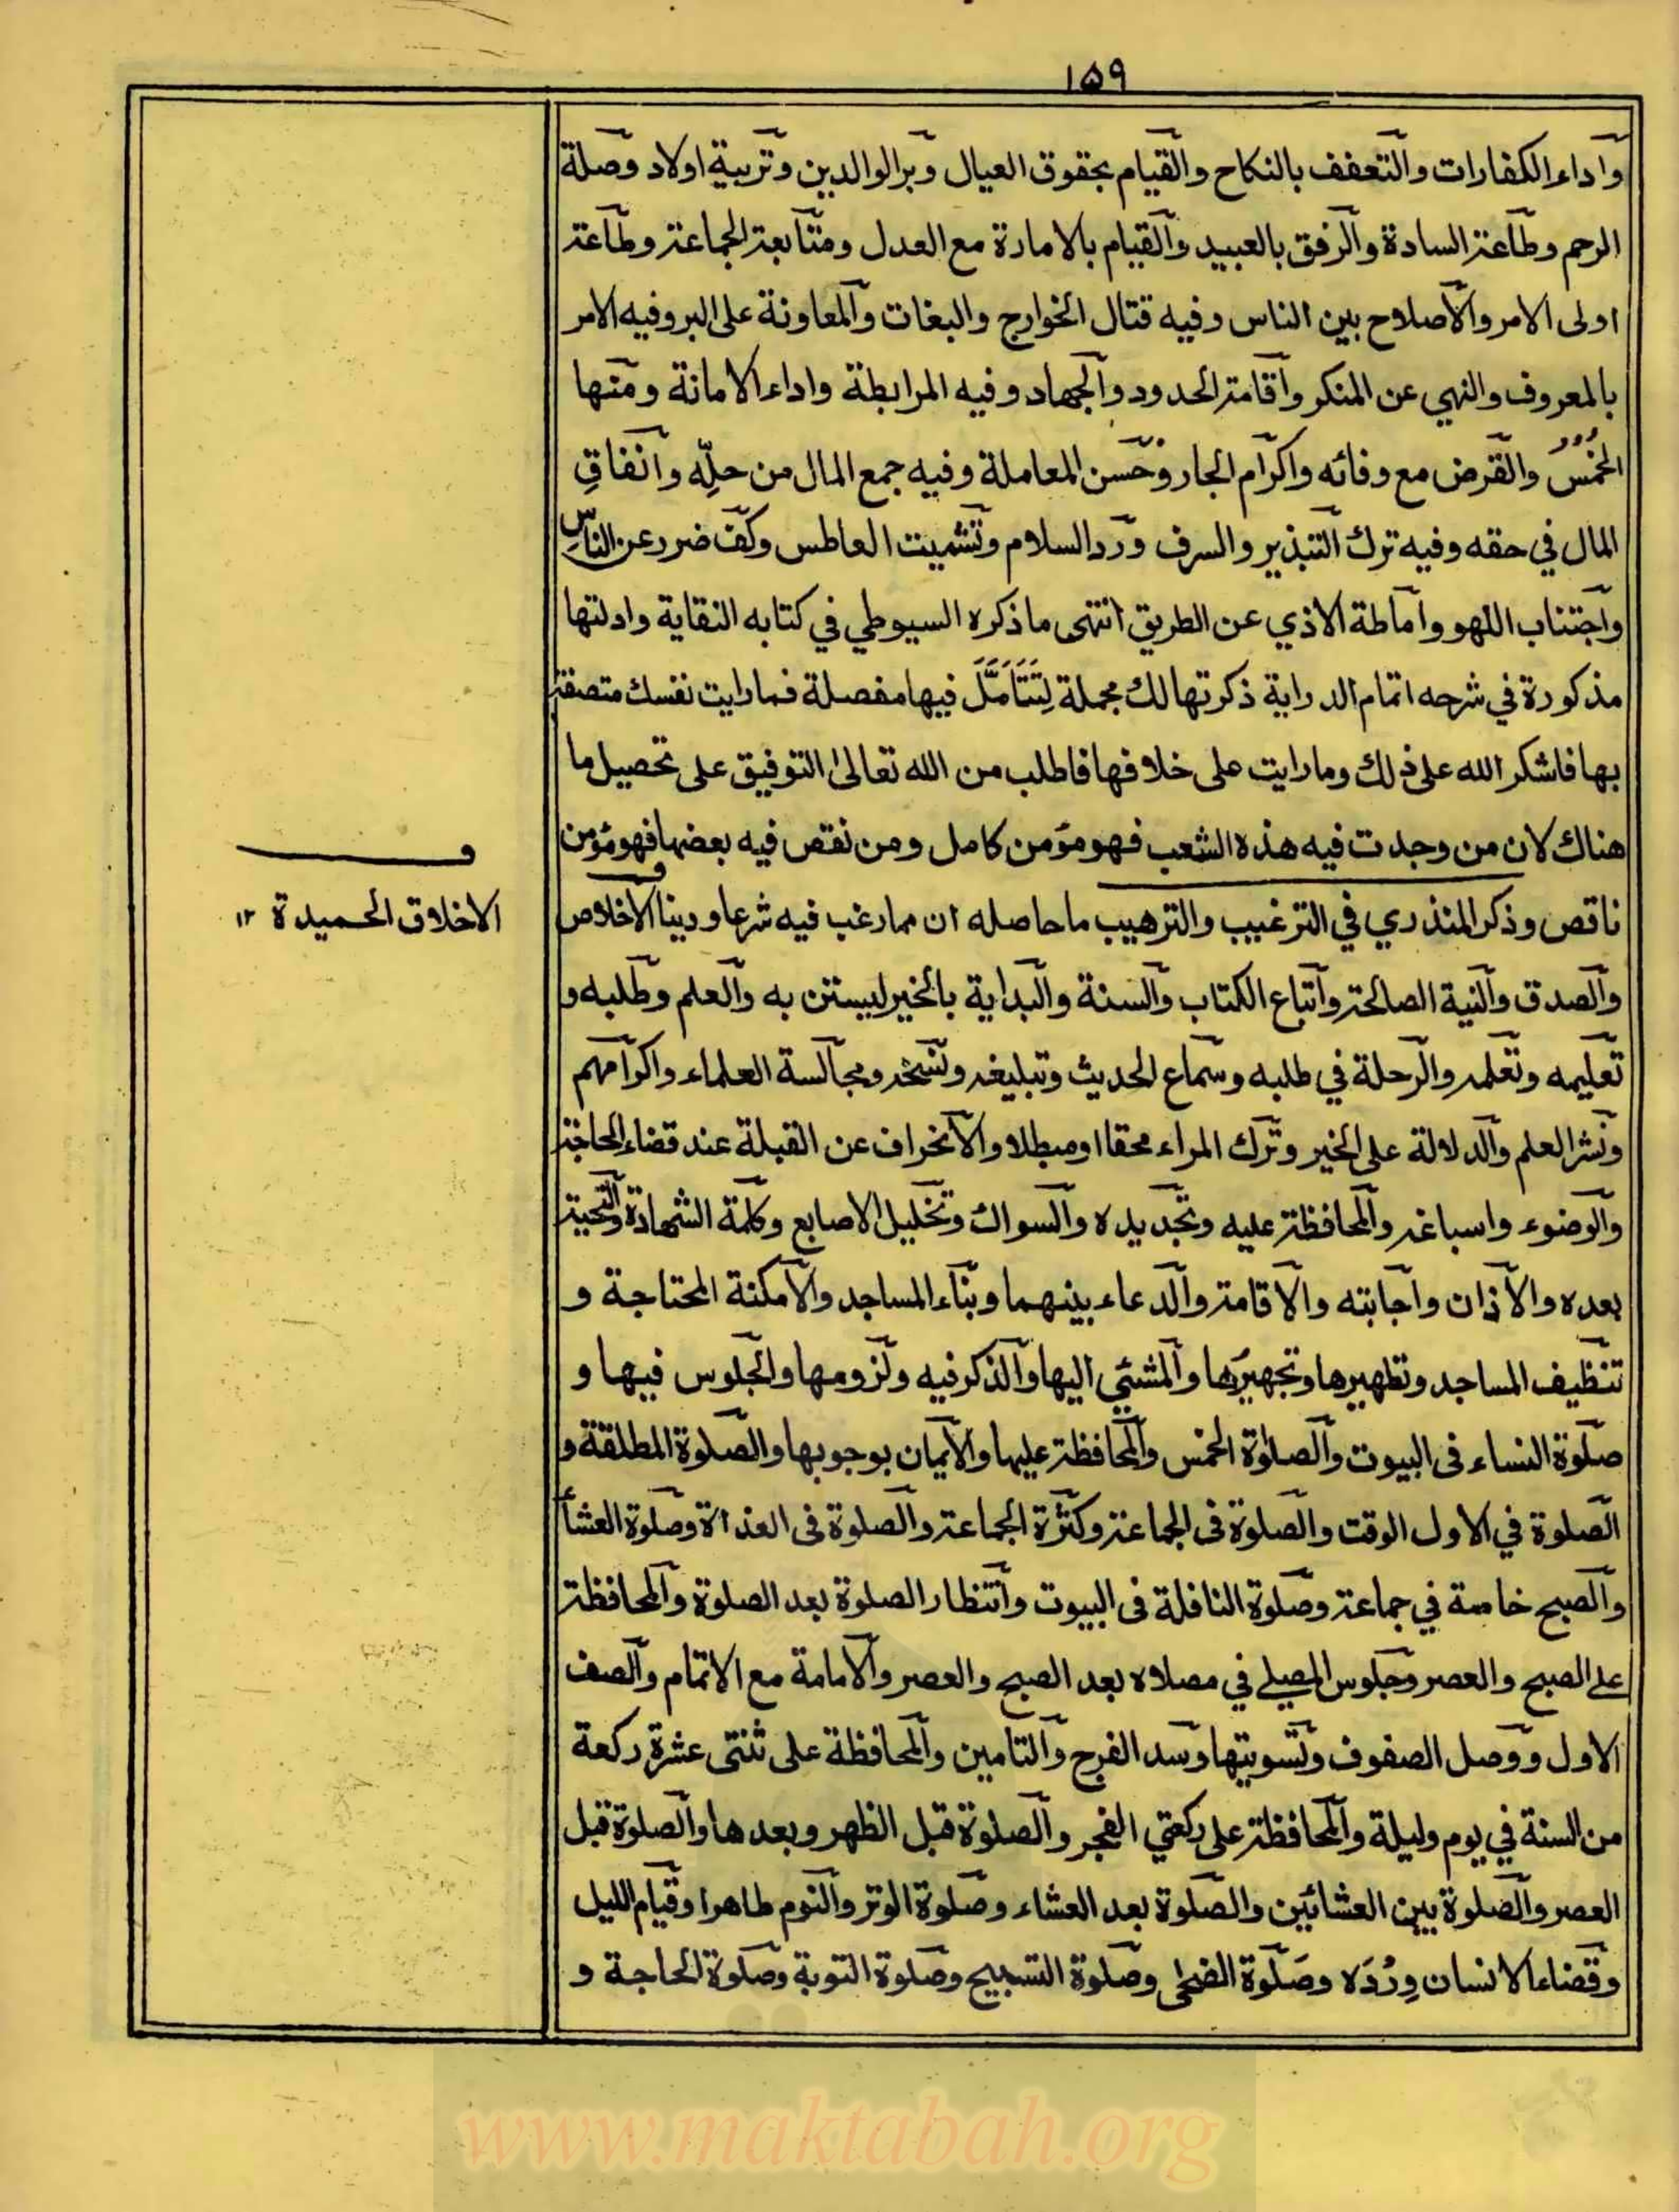 ۱۵۹
واداء الكفارات والتعفف بالنكاح والقيام بحقوق العيال وبر الوالدين وتربية اولاد وصلة
الرحم وطاعة السادة والرفق بالعبيد والقيام بالامارة مع العدل ومتابعة الجماعة وطاعة
اولى الامر والاصلاح بين الناس وفيه قتال الخوارج والبغات والمعاونة على البر وفيه الامر
بالمعروف والنهي عن المنكر واقامة الحدود والجهاد وفيه المرابطة واداء الامانة ومنها
الخُمُسُ والقرض مع وفائه واكرام الجار وحسن المعاملة وفيه جمع المال من حلِّه وانفاقِ
المال في حقه وفيه ترك التبذير والسرف ورد السلام وتشميت العاطس وكف ضرر عن الناسِ
واجتناب اللهو واماطة الاذي عن الطريق انتهى ما ذكره السيوطي في كتابه النقاية وادلتها
مذكورة في شرحه اتمام الدراية ذكرتها لك مجملة لِتَتَأَمَّلَ فيها مفصلة فما رايت نفسك متصفة
بها فاشكر الله على ذلك وما رايت على خلافها فاطلب من الله تعالىٰ التوفيق على تحصيل ما
هناك لان من وجدت فيه هذه الشعب فهو مؤمن كامل ومن نقص فيه بعضها فهو مؤمن
ناقص وذكر المنذري في الترغيب والترهيب ما حاصله ان مما رغب فيه شرعا ودينا الاخلاص
الاخلاق الحميدة ۱۲
والصدق والنية الصالحة واتباع الكتاب والسنة والبداية بالخير ليستن به والعلم وطلبه و
تعليمه وتعلمه والرحلة في طلبه وسماع الحديث وتبليغه ونسخه ومجالسة العلماء واكرامهم
ونشر العلم والدلالة على الخير وترك المراء محقا او مبطلا والانحراف عن القبلة عند قضاء الحاجة
والوضوء واسباغه والمحافظة عليه وتجديده والسواك وتخليل الاصابع وكلمة الشهادة والتحية
بعده والاذان واجابته والاقامة والدعاء بينهما وبناء المساجد والامكنة المحتاجة و
تنظيف المساجد وتطهيرها وتجهيزها والمشئي اليها والذكر فيه ولزومها والجلوس فيها و
صلوة النساء فى البيوت والصلوٰة الخمس والمحافظة عليها والايمان بوجوبها والصلوة المطلقة و
الصلوة في الاول الوقت والصلوة فى الجماعة وكثرة الجماعة والصلوة فى الغداة وصلوة العشأ
والصبح خاصة في جماعة وصلوة النافلة فى البيوت وانتظار الصلوة بعد الصلوة والمحافظة
على الصبح والعصر وجلوس المصلے في مصلاه بعد الصبح والعصر والامامة مع الاتمام والصف
الاول ووصل الصفوف وتسويتها وسد الفرج والتامين والمحافظة على ثنتى عشرة ركعة
من السنة في يوم وليلة والمحافظة على ركعتي الفجر والصلوة قبل الظهر وبعدها والصلوة قبل
العصر والصلوة بين العشائين والصلوة بعد العشاء وصلوة الوتر والنوم طاهرا وقيام الليل
وقضاء الانسان وِرْدَه وصَلوة الضحٰى وصلوة التسبيح وصلوة التوبة وصلوة الحاجة و
www.maktabah.org